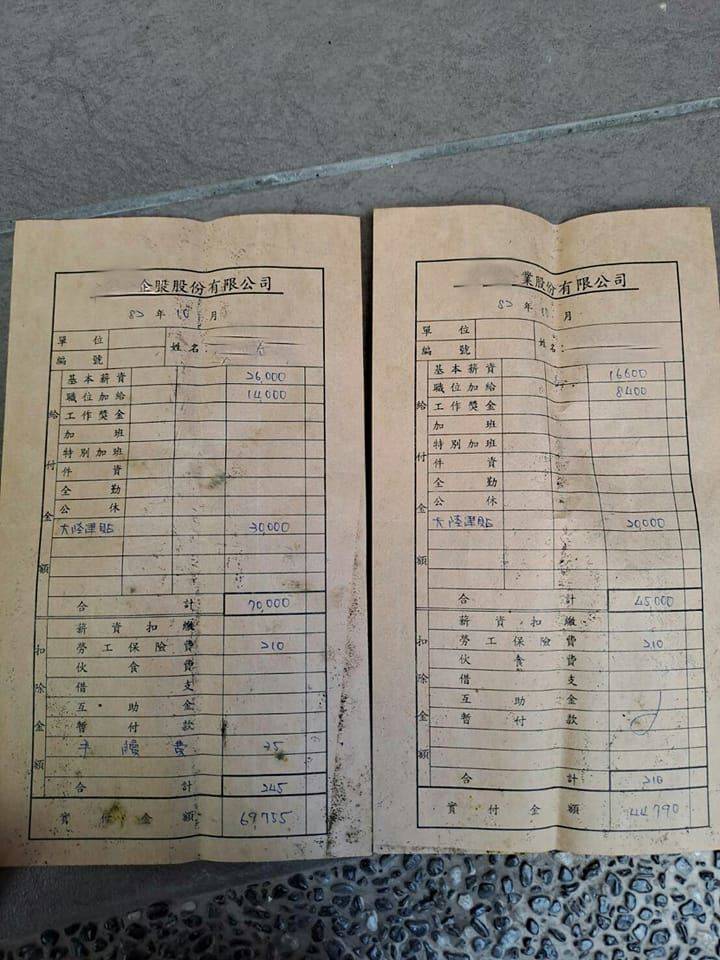 企業股份有限公司
82 年 10 月
單位
姓名:
編號
給付金額
基本薪資 26,000
職位加給 14,000
工作獎金
加班
特別加班
件資
全勤
公休
大陸津貼 30,000
合計 70,000
扣除金額
薪資扣繳
勞工保險費 210
伙食費
借支
互助金
暫付款
手續費 35
合計 245
實付金額 69,755
業股份有限公司
82 年 月
單位
姓名:
編號
給付金額
基本薪資 16600
職位加給 8400
工作獎金
加班
特別加班
件資
全勤
公休
大陸津貼 20,000
合計 45,000
扣除金額
薪資扣繳
勞工保險費 210
伙食費
借支
互助金
暫付款
合計 210
實付金額 44,790